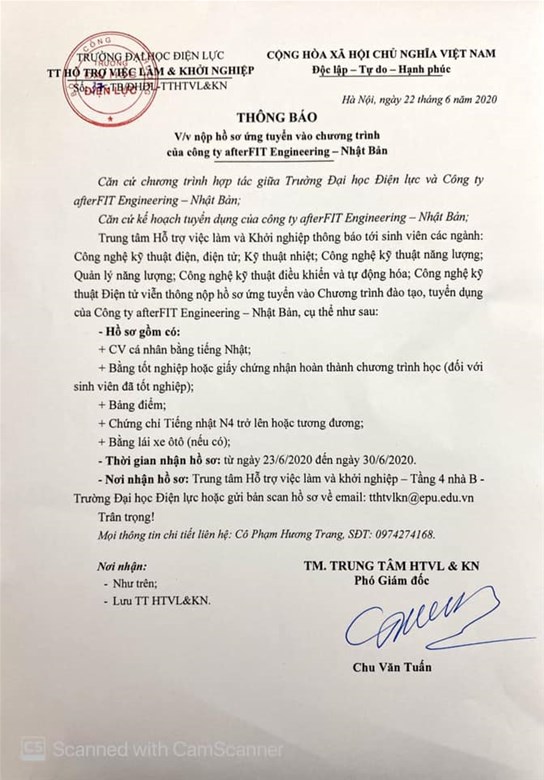 TRƯỜNG ĐẠI HỌC ĐIỆN LỰC
TT HỖ TRỢ VIỆC LÀM & KHỞI NGHIỆP
Số: TB/ĐHĐL-TTHTVL&KN
CỘNG HÒA XÃ HỘI CHỦ NGHĨA VIỆT NAM
Độc lập – Tự do – Hạnh phúc
Hà Nội, ngày 22 tháng 6 năm 2020
THÔNG BÁO
V/v nộp hồ sơ ứng tuyển vào chương trình
của công ty afterFIT Engineering – Nhật Bản
Căn cứ chương trình hợp tác giữa Trường Đại học Điện lực và Công ty
afterFIT Engineering – Nhật Bản;
Căn cứ kế hoạch tuyển dụng của công ty afterFIT Engineering – Nhật Bản;
Trung tâm Hỗ trợ việc làm và Khởi nghiệp thông báo tới sinh viên các ngành:
Công nghệ kỹ thuật điện, điện tử; Kỹ thuật nhiệt; Công nghệ kỹ thuật năng lượng;
Quản lý năng lượng; Công nghệ kỹ thuật điều khiển và tự động hóa; Công nghệ kỹ
thuật Điện tử viễn thông nộp hồ sơ ứng tuyển vào Chương trình đào tạo, tuyển dụng
của Công ty afterFIT Engineering – Nhật Bản, cụ thể như sau:
- Hồ sơ gồm có:
+ CV cá nhân bằng tiếng Nhật;
+ Bằng tốt nghiệp hoặc giấy chứng nhận hoàn thành chương trình học (đối với
sinh viên đã tốt nghiệp);
+ Bảng điểm;
+ Chứng chỉ Tiếng nhật N4 trở lên hoặc tương đương;
+ Bằng lái xe ôtô (nếu có);
- Thời gian nhận hồ sơ: từ ngày 23/6/2020 đến ngày 30/6/2020.
- Nơi nhận hồ sơ: Trung tâm Hỗ trợ việc làm và khởi nghiệp – Tầng 4 nhà B -
Trường Đại học Điện lực hoặc gửi bản scan hồ sơ về email: tthtvlkn@epu.edu.vn
Trân trọng!
Mọi thông tin chi tiết liên hệ: Cô Phạm Hương Trang, SĐT: 0974274168.
Nơi nhận:
- Như trên;
- Lưu TT HTVL&KN.
TM. TRUNG TÂM HTVL & KN
Phó Giám đốc
Chu Văn Tuấn
CS Scanned with CamScanner